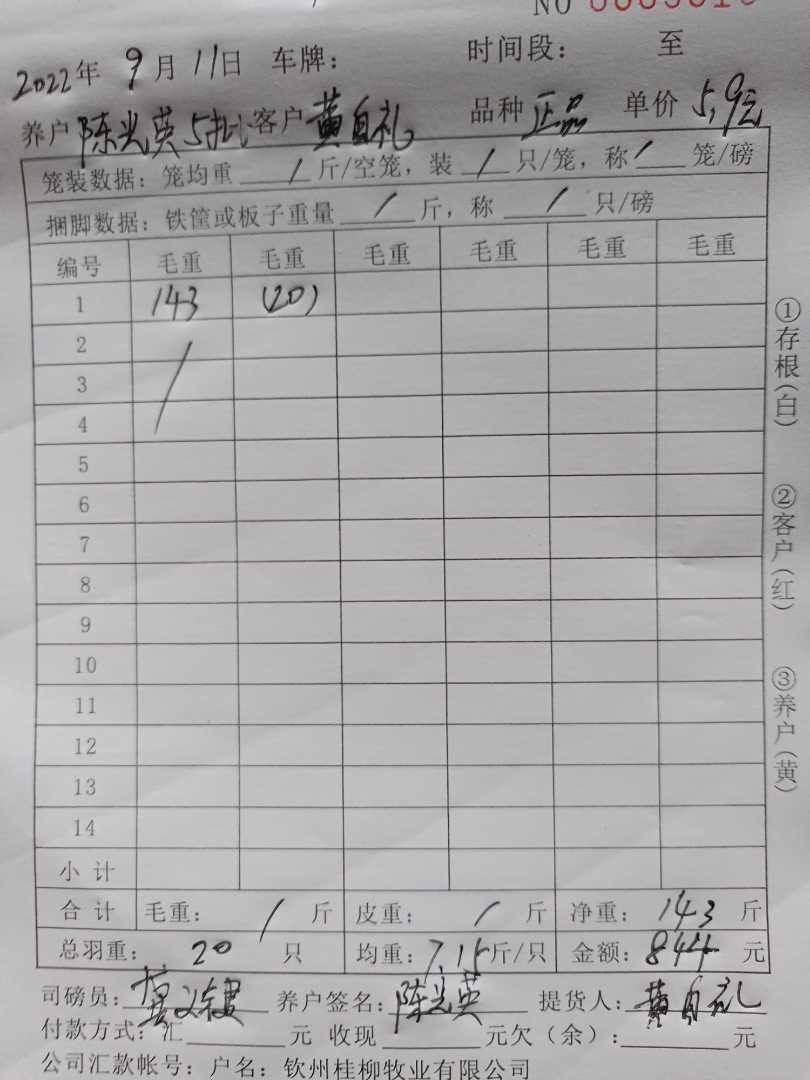 NO
2022年 9月 11日 车牌： 时间段： 至
养户 陈光英5批 客户 黄自礼 品种 正品 单价 5.9元
笼装数据：笼均重 / 斤/空笼，装 / 只/笼，称 / 笼/磅
捆脚数据：铁筐或板子重量 / 斤，称 / 只/磅
编号 毛重 毛重 毛重 毛重 毛重 毛重
1 143 (20)
2 /
3
4
5
6
7
8
9
10
11
12
13
14
小计
合计 毛重： / 斤 皮重： / 斤 净重： 143 斤
总羽重： 20 只 均重：7.15斤/只 金额：844 元
司磅员： 养户签名：陈光英 提货人：黄自礼
付款方式：汇 元 收现 元欠（余）： 元
公司汇款帐号：户名：钦州桂柳牧业有限公司
①存根（白）
②客户（红）
③养户（黄）